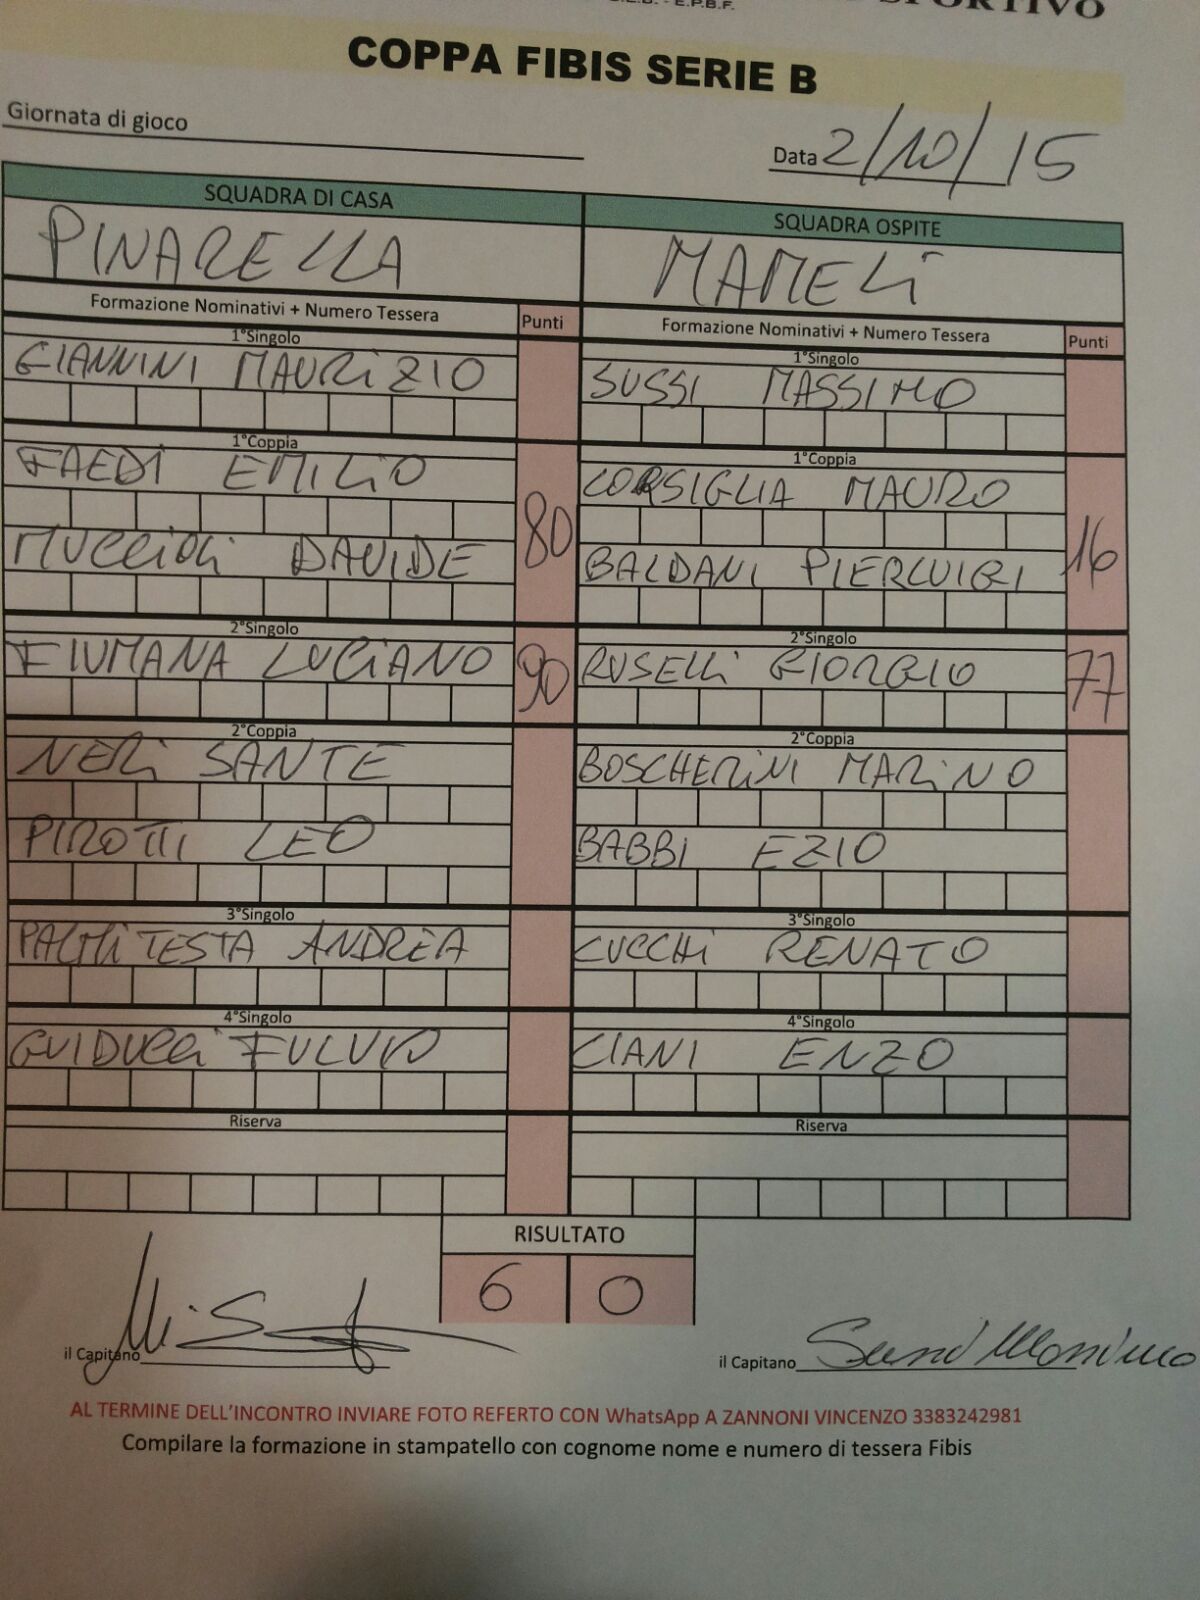 SPORTIVO
- E.P.B.F.
COPPA FIBIS SERIE B
Giornata di gioco
Data 2/10/15
SQUADRA DI CASA SQUADRA OSPITE
PINARELLA MAMELi
Formazione Nominativi + Numero Tessera Punti Formazione Nominativi + Numero Tessera Punti
1°Singolo 1°Singolo
GIANNINI MAURiZIO SUSSI MASSIMO
1°Coppia 1°Coppia
FAEDi EMILiO CORSIGLIA MAURO
80 16
MUCCIOLi DAVIDE BALDANI PIERLUIGI
2°Singolo 2°Singolo
FIUMANA LUCiANO 90 RUSELLi GIORGIO 77
2°Coppia 2°Coppia
NERi SANTE BOSCHERiNI MARiNO
PIROTTI LEO BABBI EZIO
3°Singolo 3°Singolo
PALMiTESTA ANDREA CUCCHi RENATO
4°Singolo 4°Singolo
GUIDUCCi FULVIO CIANI ENZO
Riserva Riserva
RISULTATO
6 0
il Capitano il Capitano
AL TERMINE DELL'INCONTRO INVIARE FOTO REFERTO CON WhatsApp A ZANNONI VINCENZO 3383242981
Compilare la formazione in stampatello con cognome nome e numero di tessera Fibis